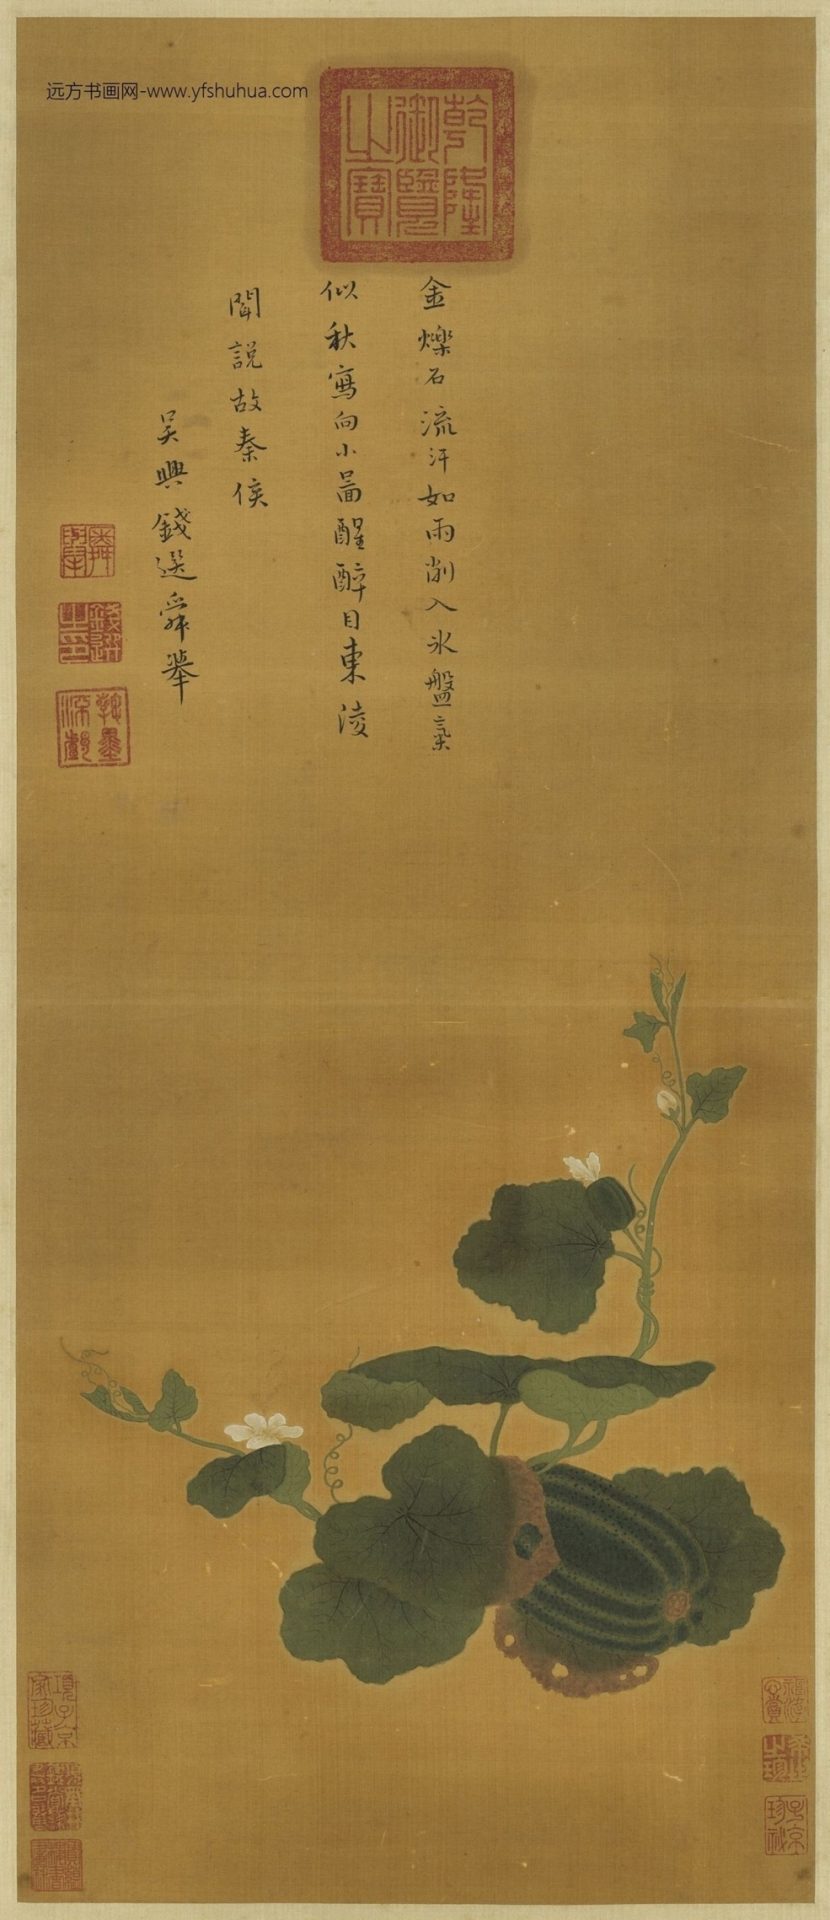 远方书画网-www.yfshuhua.com
乾隆
御覽
之寶
金爍石流汗如雨削入氷盤氣
似秋寫向小圖醒醉目東陵
聞說故秦侯
吳興錢選舜舉
舜舉
錢選之印
項子京家珍藏
子京